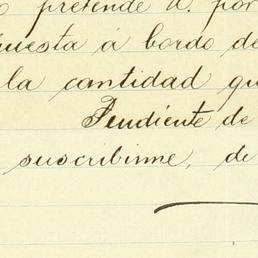 pretende U. por
uesta á bordo de
la cantidad qu
Pendiente de
suscribirme, de